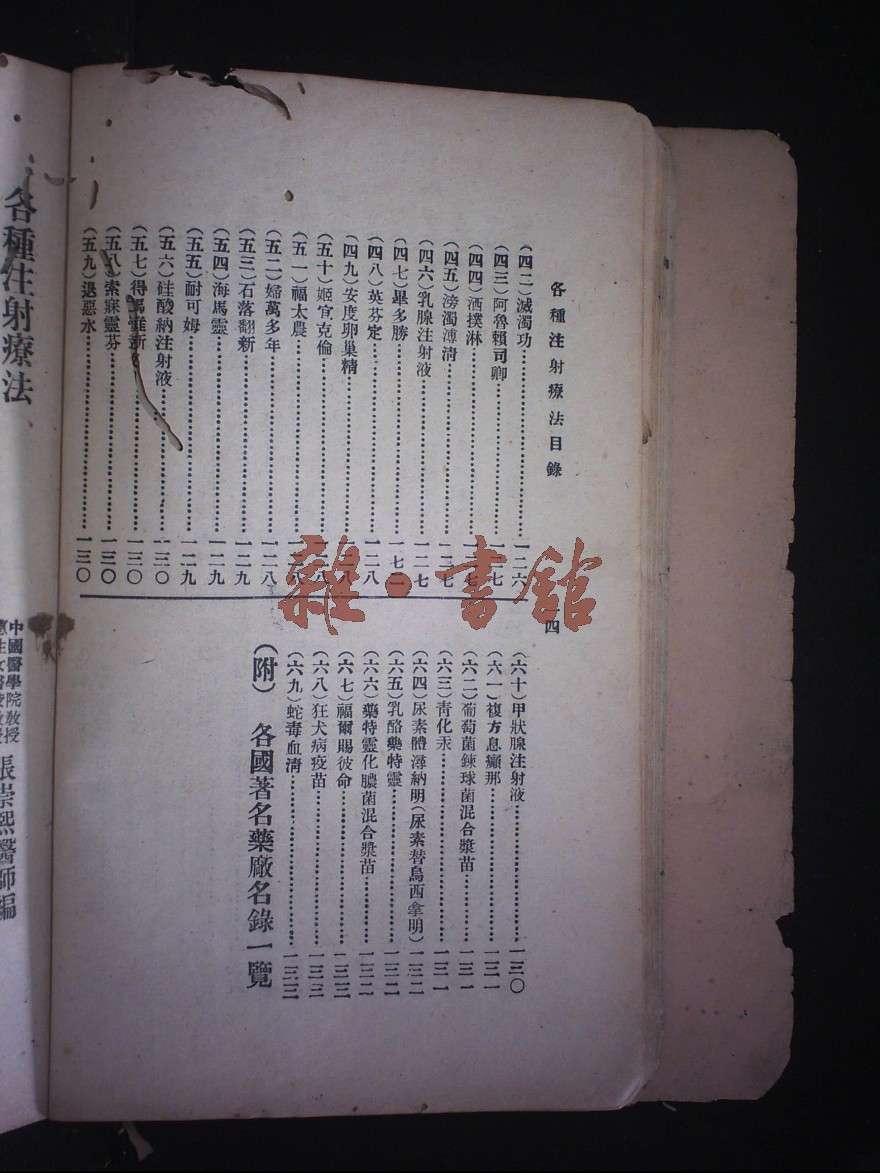 各種注射療法目錄
四
(四二)滅濁功……一二六
(四三)阿魯賴司卿……一二七
(四四)洒撲淋……一二七
(四五)滂濁溥清……一二七
(四六)乳腺注射液……一二七
(四七)畢多勝……
(四八)英芬定……一二八
(四九)安度卵巢精……一二八
(五十)姬官克倫……一二八
(五一)福太農……一二八
(五二)婦萬多年……一二八
(五三)石落翻新……一二九
(五四)海馬靈……一二九
(五五)耐可姆……一二九
(五六)硅酸納注射液……一三〇
(五七)得馬……一三〇
(五八)索寐靈芬……一三〇
(五九)退惡水……一三〇
(六十)甲狀腺注射液……一三〇
(六一)複方息癲那……一三一
(六二)葡萄菌鍊球菌混合漿苗……一三一
(六三)青化汞……一三一
(六四)尿素體潯納明(尿素替烏西拿明)一三二
(六五)乳酪藥特靈……一三二
(六六)藥特靈化膿菌混合漿苗……一三二
(六七)福爾賜彼命……一三三
(六八)狂犬病疫苗……一三三
(六九)蛇毒血清……一三三
(附) 各國著名藥廠名錄一覽
各種注射療法
中國醫學院教授
張崇熙醫師編
雜·書館